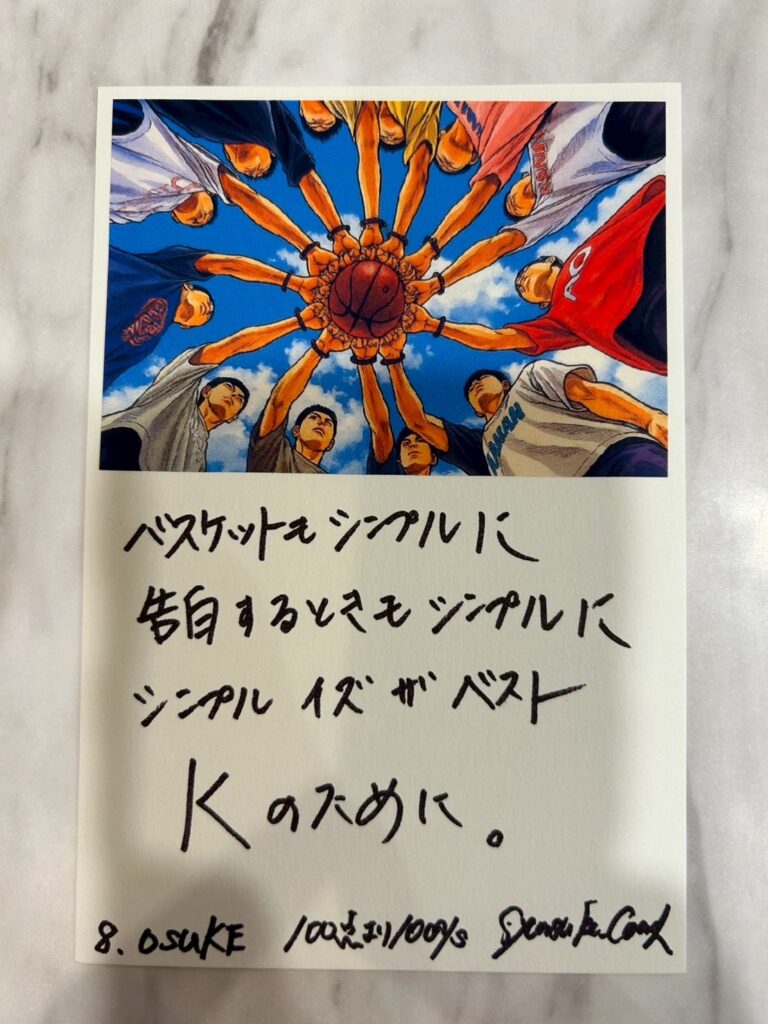 バスケットもシンプルに
告白するときもシンプルに
シンプル イズ ザ ベスト
Kのために。
8. OSUKE 100点より100%